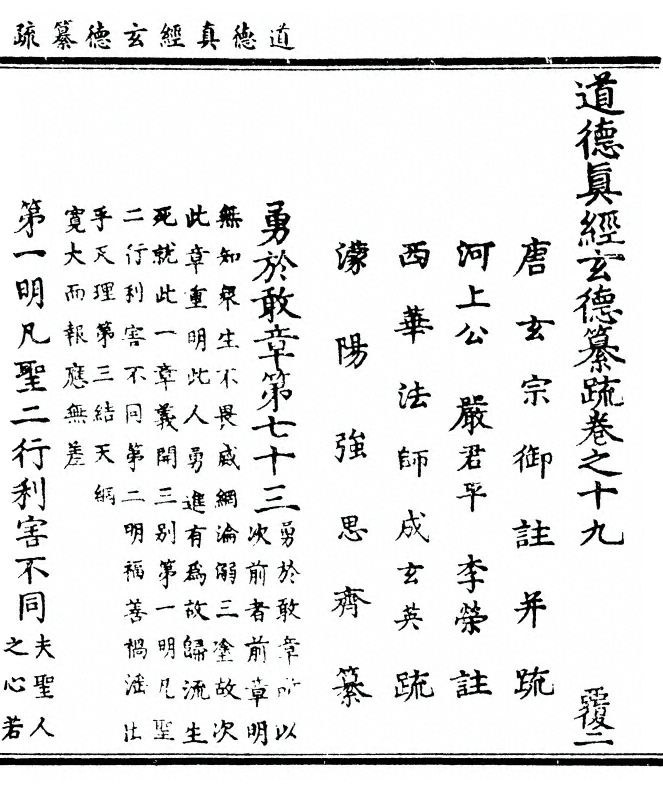 道德真經玄德纂疏
道德眞經玄德纂疏卷之十九 覆二
唐玄宗御註并疏
河上公 嚴君平 李榮 註
西華法師成玄英疏
濛陽強思齊纂
勇於敢章第七十三
勇於敢章所以
次前者前章明
無知衆生不畏威網淪溺三塗故次
此章重明此人勇進有爲故歸流生
死就此一章義開三别第一明凡聖
二行利害不同第二明福善禍淫出
乎天理第三結天網
寬大而報應無差
第一明凡聖二行利害不同
夫聖人
之心若